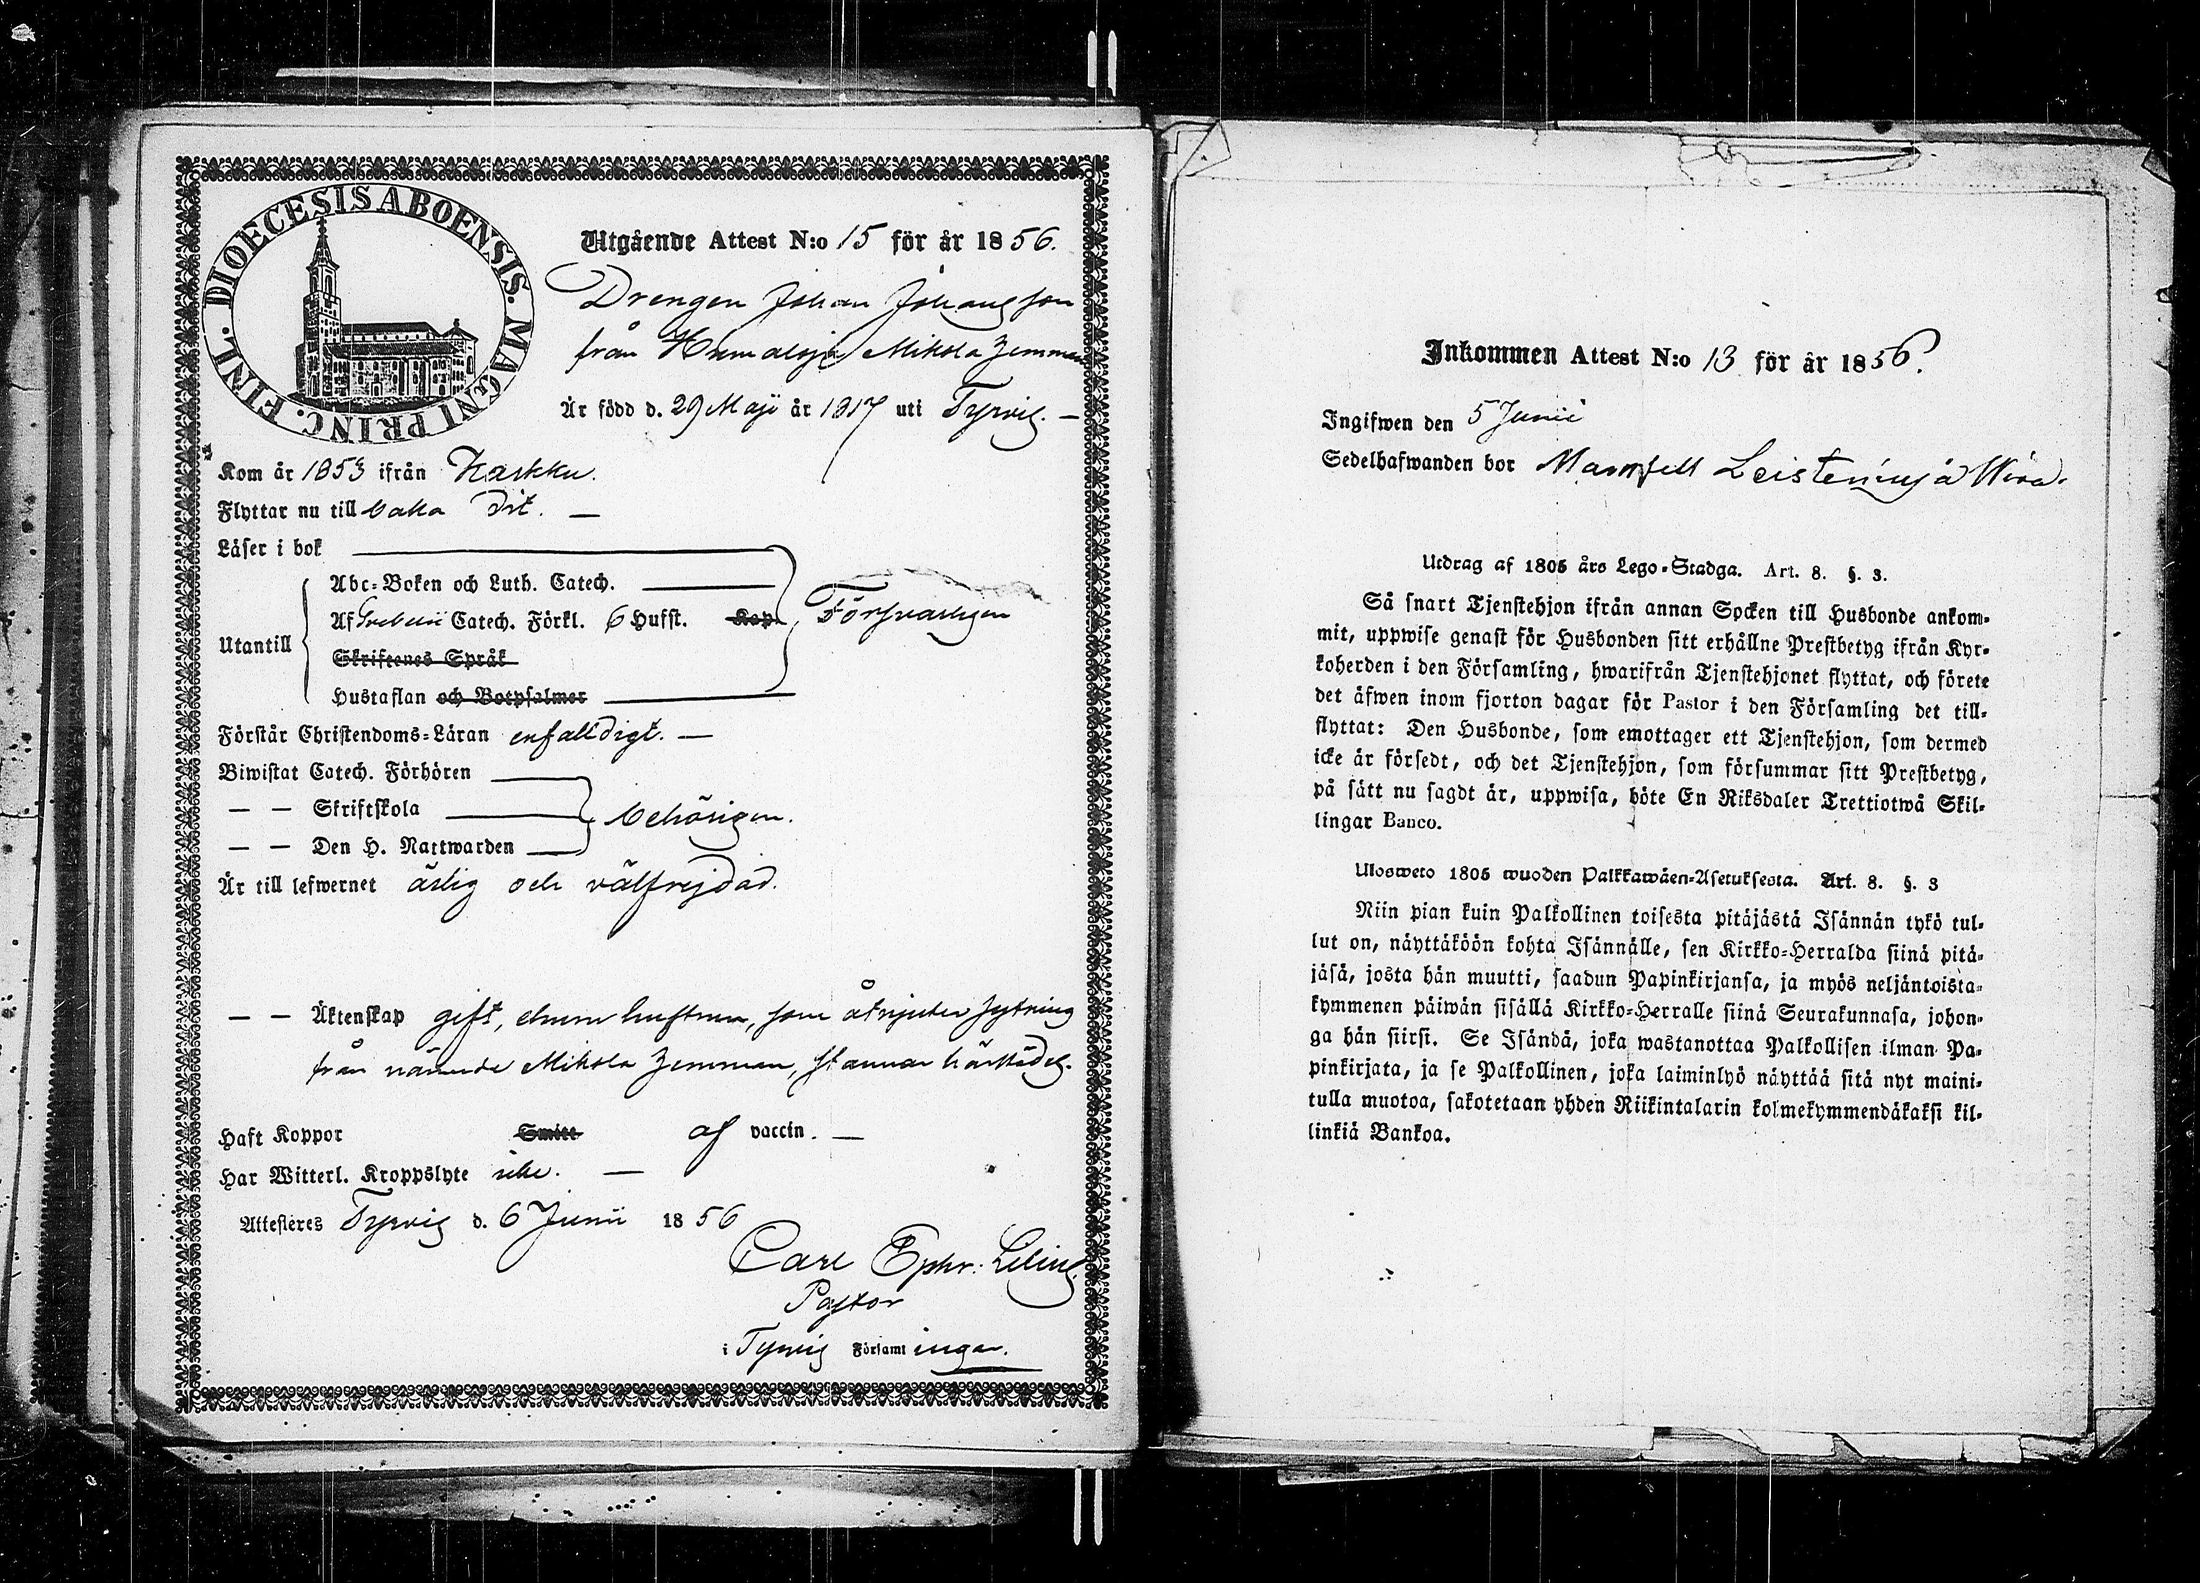 DIOECESIS ABOENSIS. MAGNI PRINC. FINL.
Utgående Attest N:o 15 för år 1856.
Drengen Johan Johansson
från Humaloja Mikola Jemman
Är född d. 29 Maji år 1817 uti Tyrvis. —
Kom år 1853 ifrån Karkku.
Flyttar nu till baka dit. —
Läser i bok
Utantill
Abc-Boken och Luth. Catech.
Af Svebelii Catech. Förkl. 6 Hufst. Kap.
Försvarligen
Skriftenes Språk
Hustaflan och Botpsalmer
Förstår Christendoms-Läran enfaldigt. —
Biwistat Catech. Förhören
— — Skriftskola
behörigen.
— — Den H. Nattwarden
Är till lefwernet ärlig och välfrejdad.
— — Äktenskap gift, hustrun, som åtnjuter sytning
från nämnde Mikola Jemman, stannar härstädes.
Haft Koppor Smitt af vaccin. —
Har Witterl. Kroppslyte icke. —
Attesteres Tyrvis d. 6 Junii 1856
Carl Ephr: Lilius
Pastor
i Tyrvis Församlingar.
Inkommen Attest N:o 13 för år 1856.
Ingifwen den 5 Junii
Sedelhafwanden bor Leistening å
Utdrag af 1805 års Lego-Stadga. Art. 8. §. 3.
Så snart Tjenstehjon ifrån annan Socken till Husbonde ankom-
mit, uppwise genast för Husbonden sitt erhållne Prestbetyg ifrån Kyr-
koherden i den Församling, hwarifrån Tjenstehjonet flyttat, och förete
det äfwen inom fjorton dagar för Pastor i den Församling det till-
flyttat: Den Husbonde, som emottager ett Tjenstehjon, som dermed
icke är försedt, och det Tjenstehjon, som försummar sitt Prestbetyg,
på sätt nu sagdt är, uppwisa, böte En Riksdaler Trettiotwå Skil-
lingar Banco.
Ulosweto 1805 wuoden Palkkawäen-Asetuksesta. Art. 8. §. 3
Niin pian kuin Palkollinen toisesta pitäjästä Isännän tykö tul-
lut on, näyttäköön kohta Isännälle, sen Kirkko-Herralda siinä pitä-
jäsä, josta hän muutti, saadun Papinkirjansa, ja myös neljäntoista-
kymmenen päiwän sisällä Kirkko-Herralle siinä Seurakunnasa, johon-
ga hän siirsi. Se Isändä, joka wastanottaa Palkollisen ilman Pa-
pinkirjata, ja se Palkollinen, joka laiminlyö näyttää sitä nyt maini-
tulla muotoa, sakotetaan yhden Riikintalarin kolmekymmendäkaksi kil-
linkiä Bankoa.